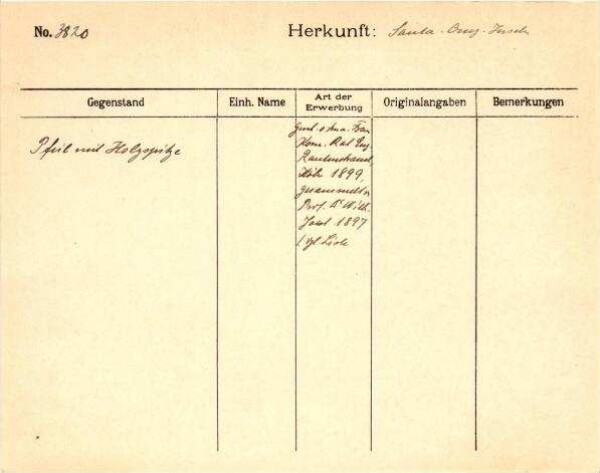 No. 3820
Herkunft: Santa-Cruz-Inseln
Gegenstand
Einh. Name
Art der Erwerbung
Originalangaben
Bemerkungen
Pfeil mit Holzspitze
Gesch. Frau
Kom. Rat Eug.
Rautenstrauch
Köln 1899,
gesammelt v.
Prof. Dr Wilh.
Joest 1897